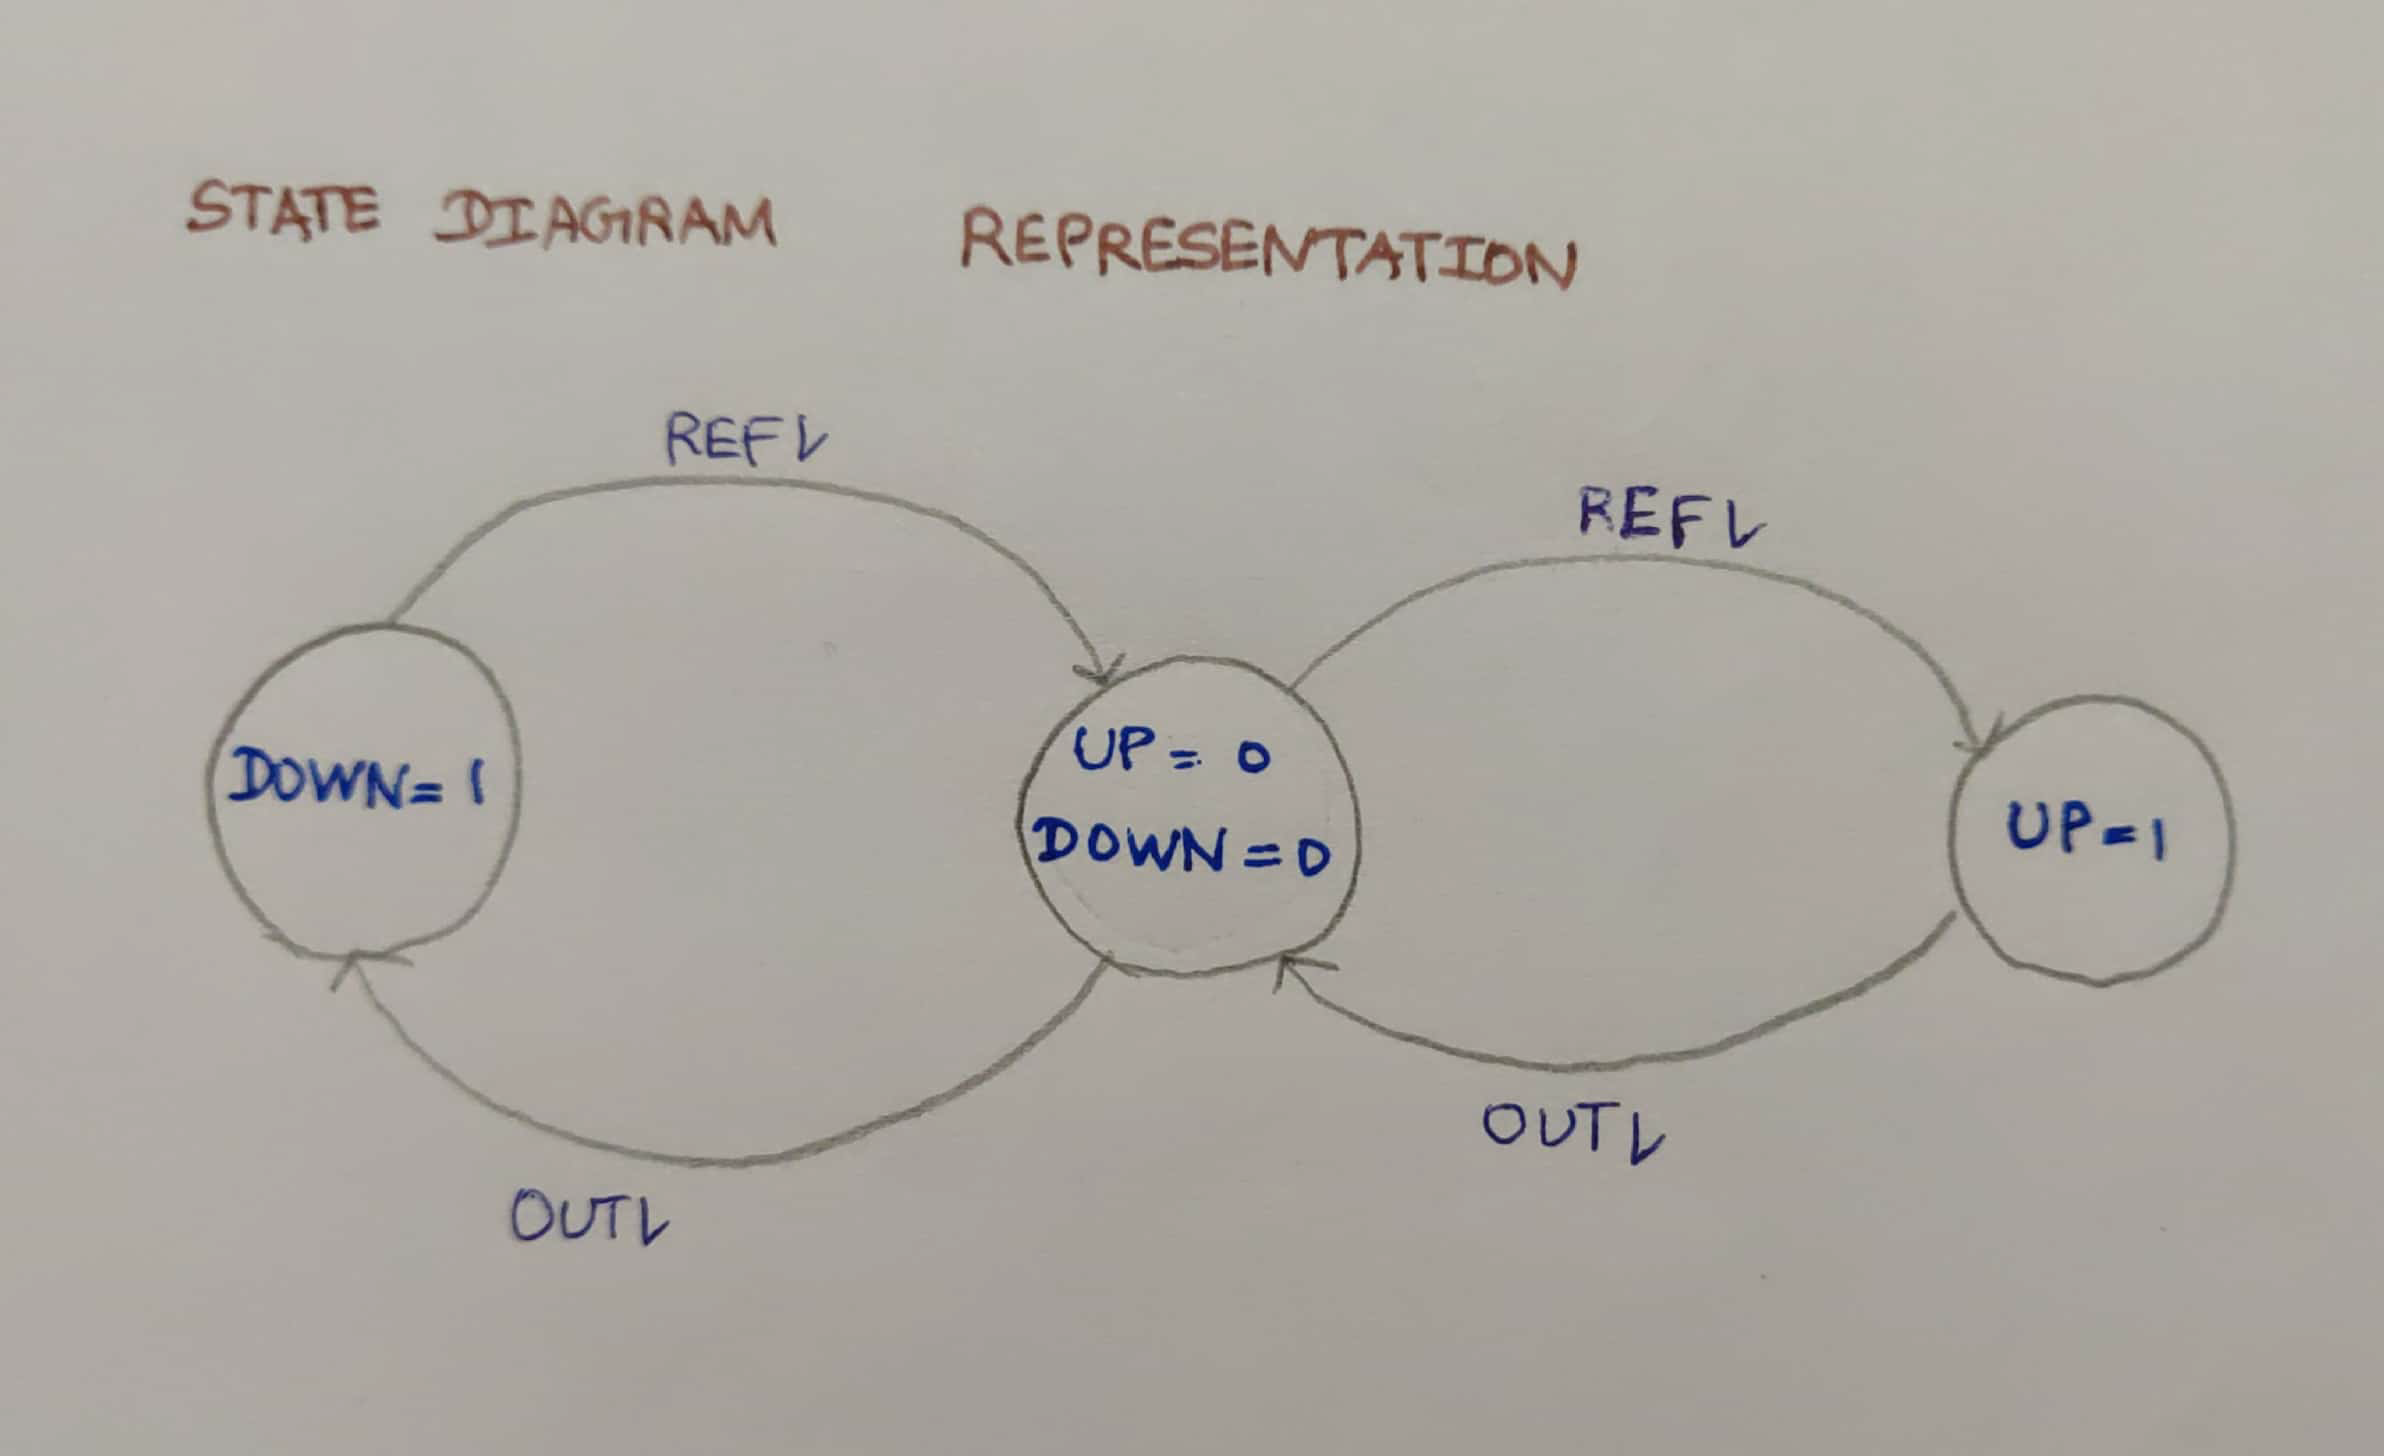 STATE DIAGRAM REPRESENTATION
REF↓
REF↓
DOWN=1
UP=0
DOWN=0
UP=1
OUT↓
OUT↓